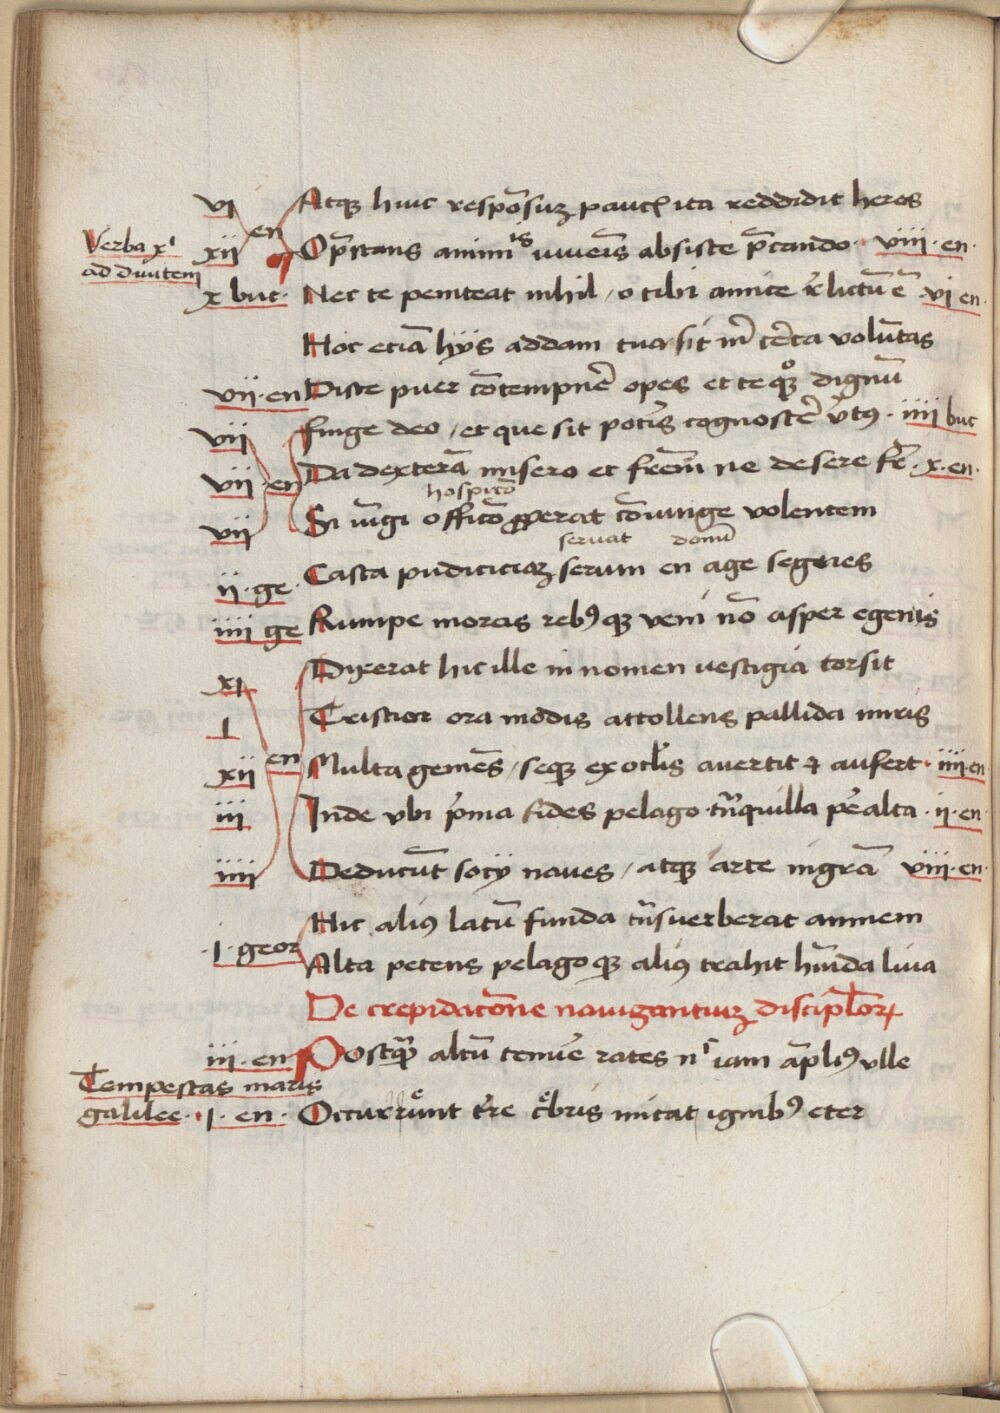 vi Atqꝫ huic respōsuꝫ paucꝭ ita reddidit heros
Verba xⁱ ad diuitem xii en O p̄stans animis iuueīs absiste p̄cando · viii · en ·
x buc · Nec te peniteat nihil / o tibi amice r̄lictū ē · vi en ·
Hoc eciā hÿs addam tua sit m̄ c̄ta volūtas
vii · en Disce puer cōtempn̄e opes et te qꝫ° dignū
vii Finge deo / et que sit pot̄is cognosc̄e v̄tꝯ · iiii buc
vii · en Da dexterā misero et fr̄em ne desere fr̄ē · x · en ·
hospicō
vii Si iūgi officō ꝓperat cōiunge volentem
seruat domū
ii · ge · Casta pudiciciaꝫ serum en age segnes
iiii ge Rumpe moras rebꝯqꝫ veni nō asper egenis
xi Dixerat hic ille in nomen vestigia torsit
I Tristior ora modis attollens pallida miris
xii en Multa gemēs / seqꝫ ex ocl̄is auertit ⁊ aufert · iiii · en
iii Inde vbi p̄ma fides pelago tn̄quilla p̄ alta · ii · en
iiii Deducūt socÿ naues / atqꝫ arte mīgrā viii · en ·
Hic aliꝯ latū funda tn̄suerberat amnem
· I · geor Alta petens pelagoqꝫ aliꝯ trahit hūida lina
De trepidacōne nauigantiuꝫ discipl̄orꝝ
iii · en Postqꝫ̄ altū tenuē rates nͨ iam āpliꝯ vlle
Tempestas maris
galilee · · I · en · Occurrūnt t̄re c̄bris micat ignibꝯ eter